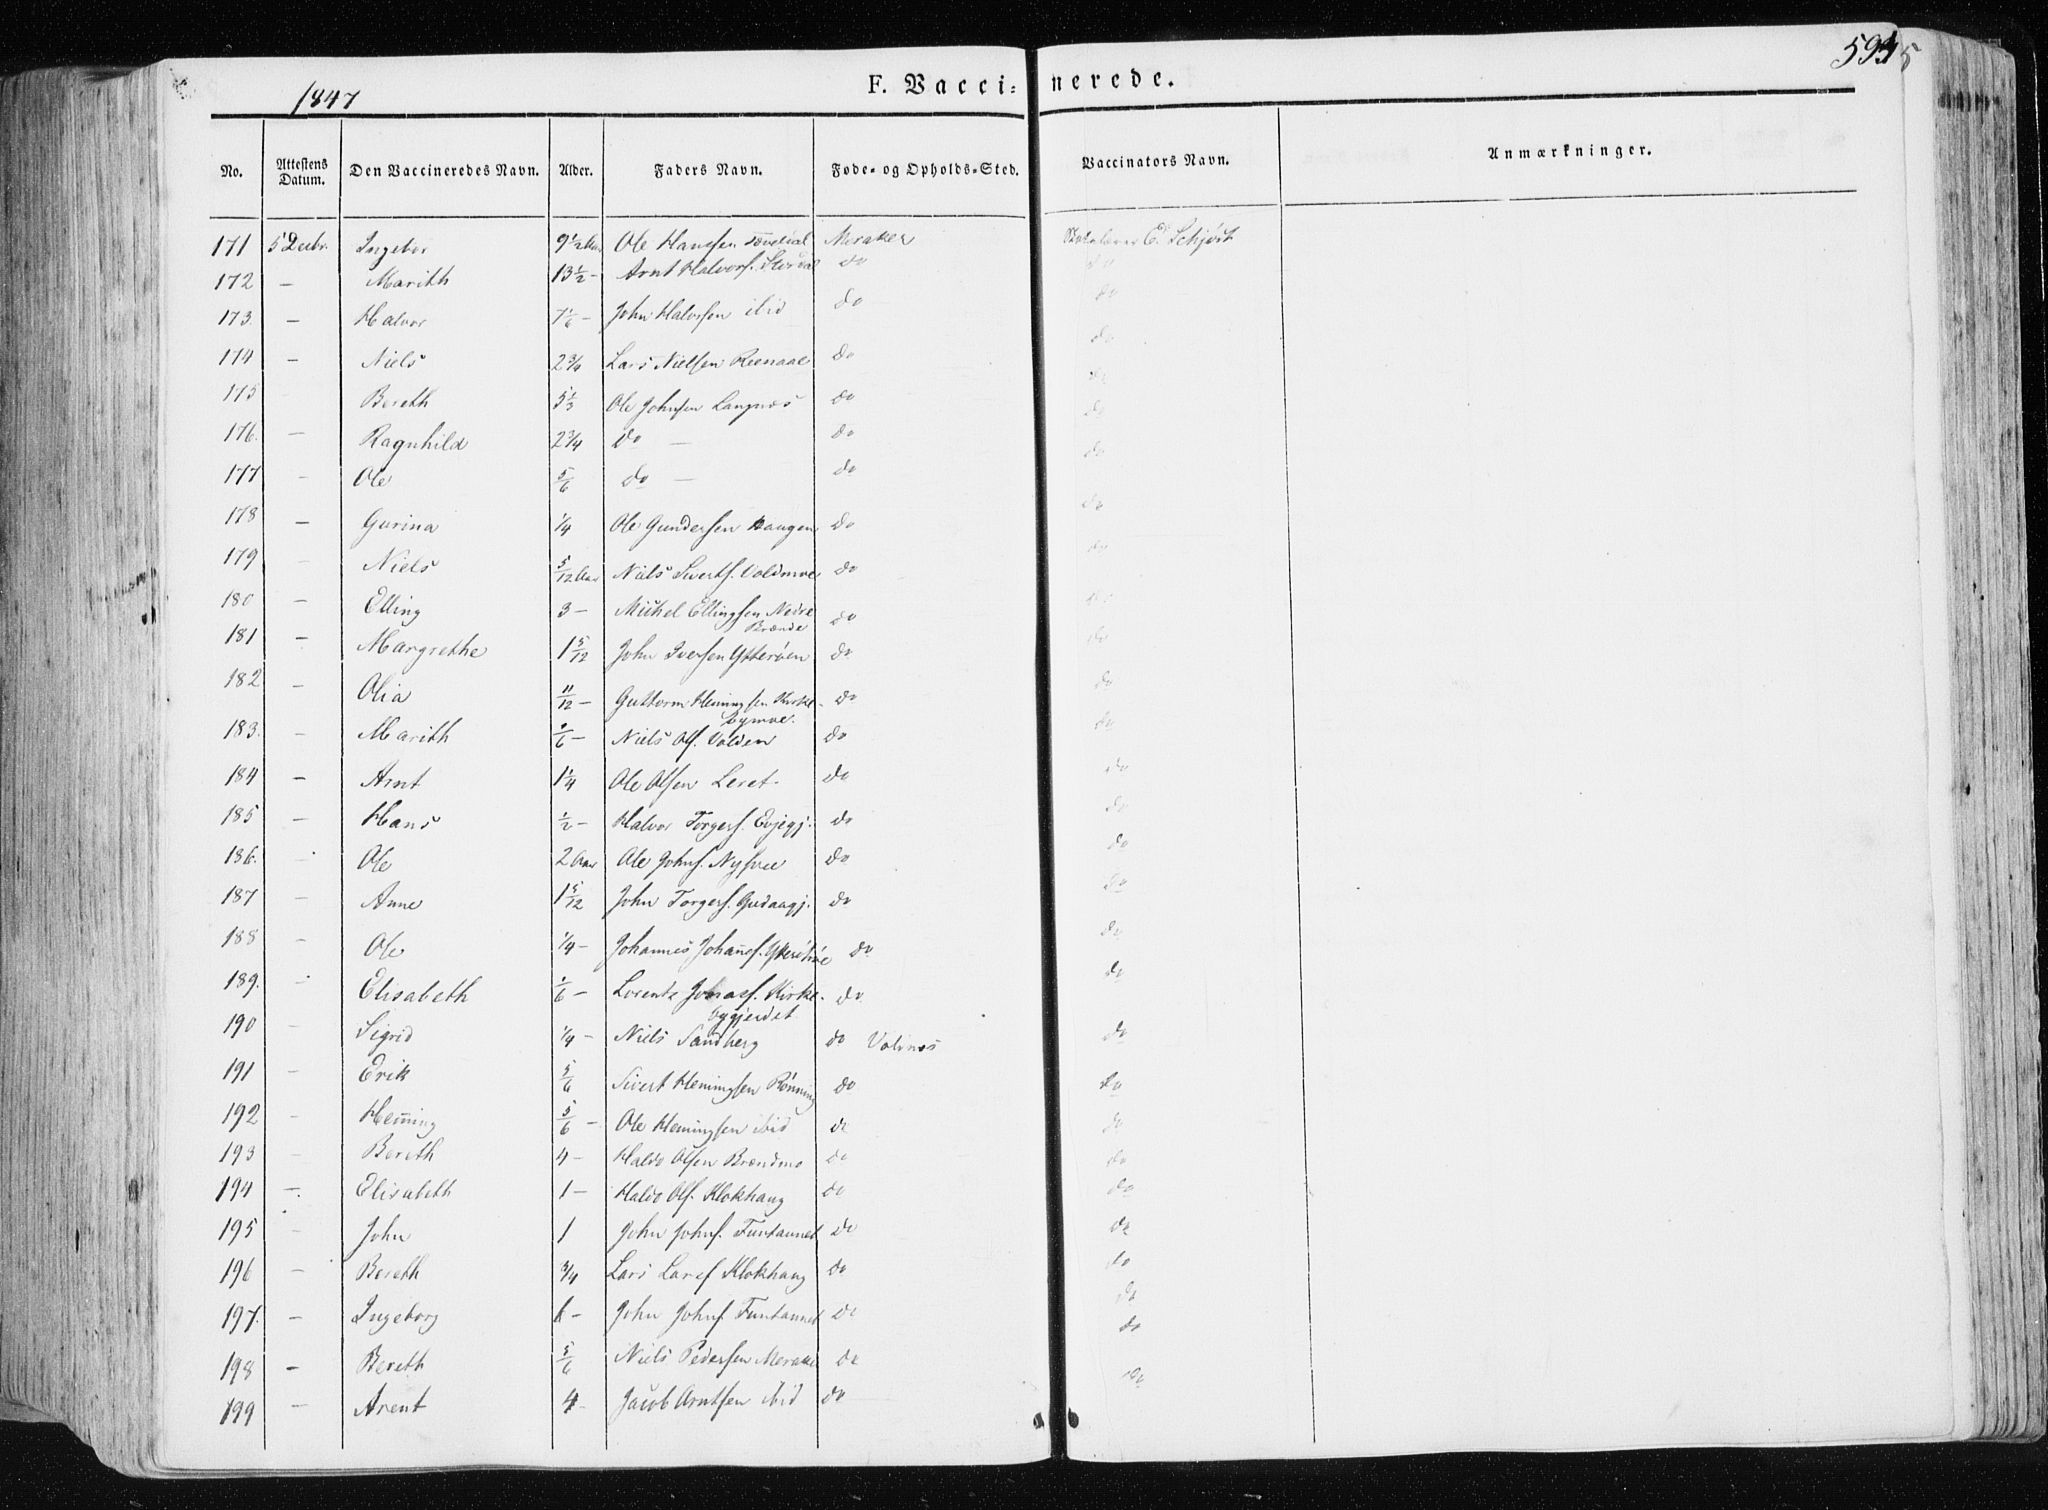 1847
F. Vaccinerede.
No. Attestens Datum. Den Vaccineredes Navn. Alder. Faders Navn. Føde- og Opholds-Sted. Vaccinators Navn. Anmærkninger.
171 5 Decbr. Ingebor 9 1/2 Aar Ole Hanssen Meraker C. Schjørt
172 — Marith 13 1/2 — Arnt Halvors. Stordal do do
173. — Halvor 7 1/6 — John Halvorsen ibid do do
174 — Niels 2 3/4 Lars Nielsen do do
175 Bereth 5 1/3 Ole Johnsen Langnes do do
176. — Ragnhild 2 3/4 do — do do
177 — Ole 5/6 do — do do
178 — Gurina 1/4 Ole Gundersen Haugen do do
179 — Niels 5/12 Aar Niels Siverts. Voldmoe do do
180 — Elling 3 — Mickel Ellingsen Nedre Brænde do do
181 — Margrethe 1 5/12 John Iversen Ytterøen do do
182 — Olia 11/12 — Guttorm Hemingsen Kirkebymoe. do do
183. — Marith 1/6 — Niels Ols. Volden do do
184 — Arnt 1 1/4 Ole Olsen Leret do do
185 — Hans 1/2 — Halvor Torgers. Evjegj. do do
186. — Ole 2 Aar Ole Johns. do do
187 — Anne 1 5/12 John Torgers. Gudaagj. do do
188 — Ole 1/4 — Johannes Johans. do do
189. — Elisabeth 1/6 — Lorentz Jonas. Kirkebygjerdet do do
190 — Sigrid 1/4 — Niels Sandberg do Volnes do
191 — Erik 5/6 Sivert Hemingsen Rønning do do
192 — Heming 5/6 — Ole Hemingsen ibid do do
193 — Bereth 4 — Haldo Olsen Brændmo do do
194 — Elisabeth 1 — Haldo Ols. Klokhaug do do
195 — John 1 John Johns. Funtaunet do do
196 — Bereth 3/4 Lars Lars. Klokhaug do do
197. — Ingeborg — John Johns. Funtaunet do do
198 — Bereth 5/6 Niels Pedersen Merake do do
199 — Arent 4 — Jacob Arntsen ibid do do